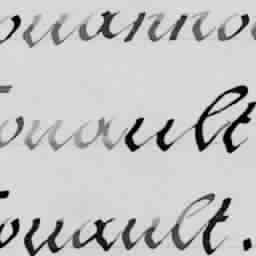 ouanno
ouault
ouault.